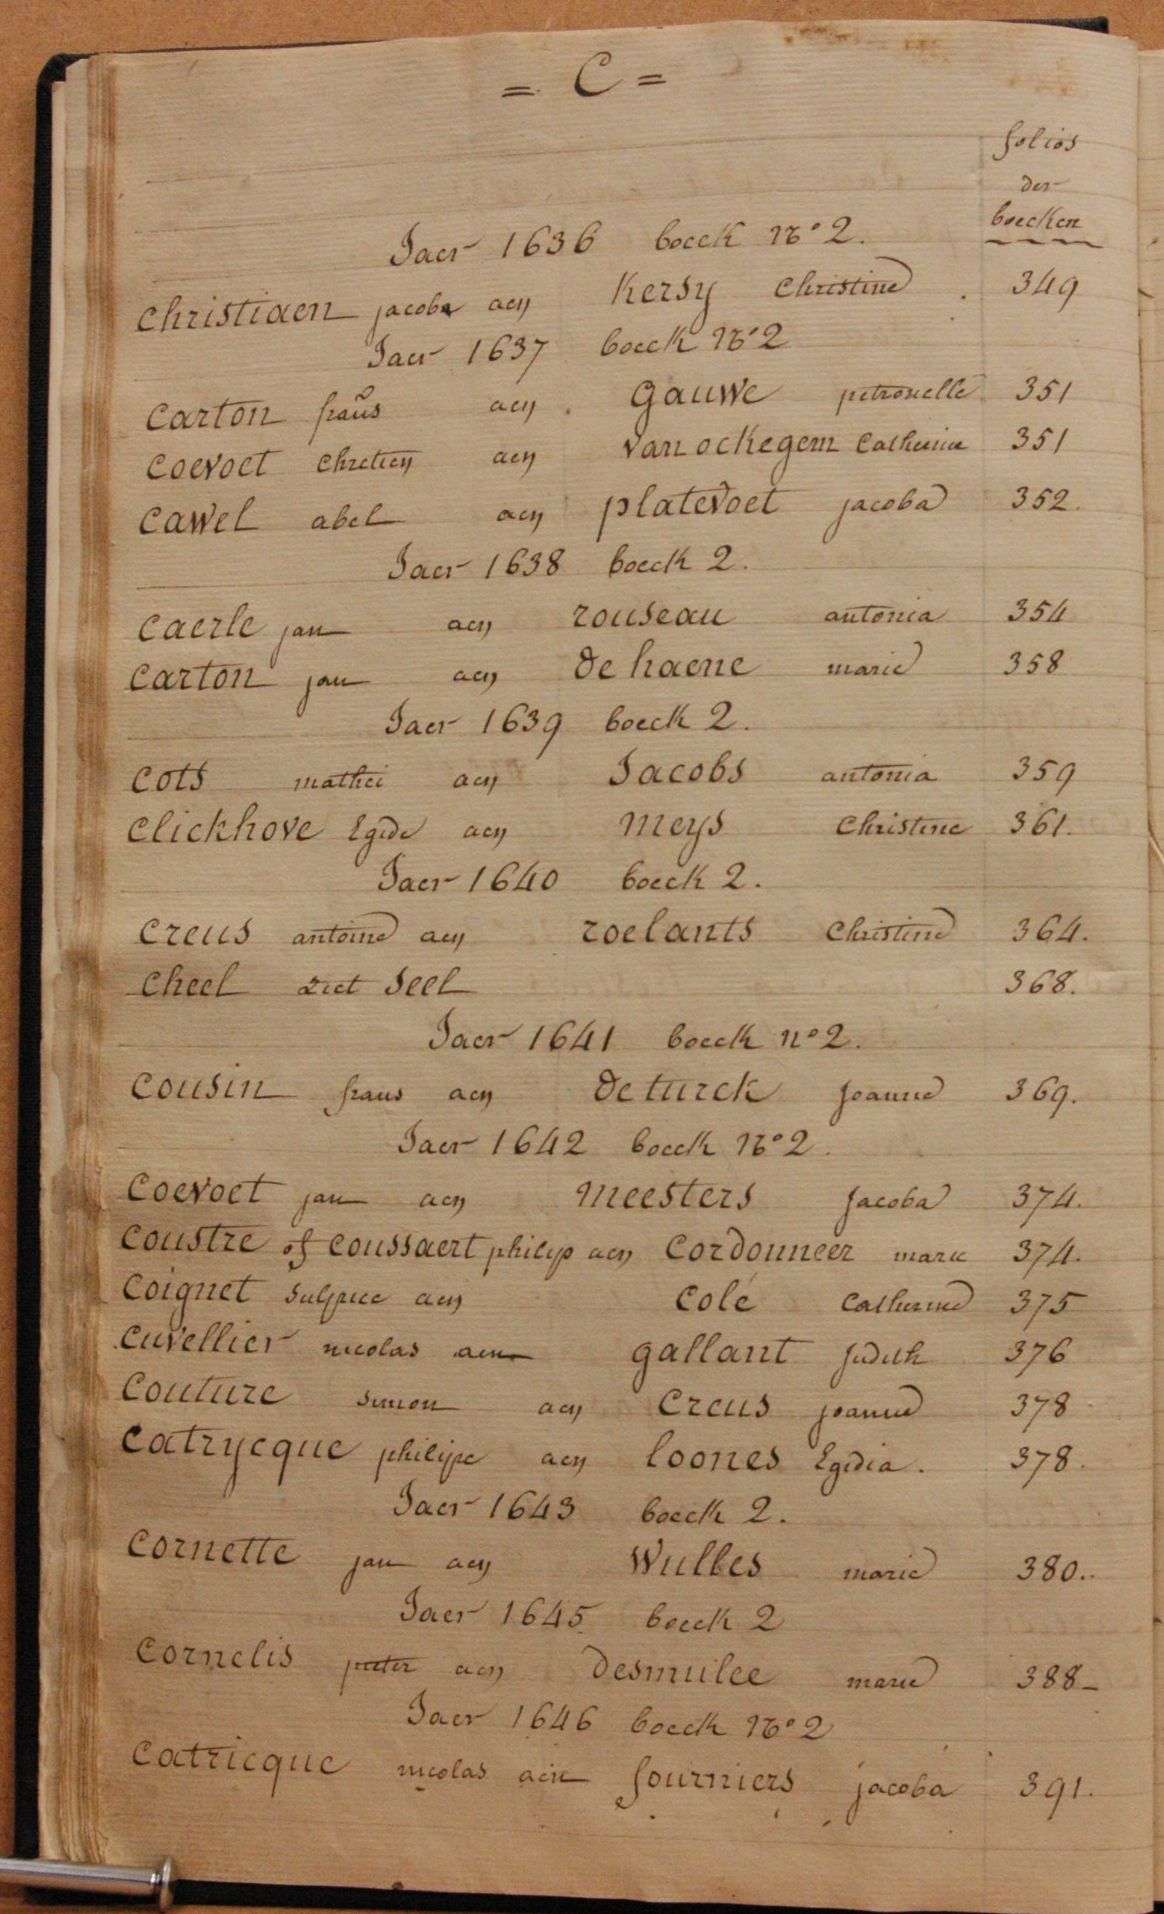 = C =
folios
der
boecken
Jaer 1636 boeck No 2.
Christiaen jacoba aen Kersy Christine . 349
Jaer 1637 boeck No 2
Carton frans aen . gauwe petronelle 351
Coevoet Chretien aen van ockegem Catherine 351
Cawel abel aen platevoet jacoba 352.
Jaer 1638 boeck 2.
Caerle jan aen rouseau antonia 354
Carton jan aen de haene marie 358
Jaer 1639 boeck 2.
Cots mathei aen Jacobs antonia 359
Clickhove Egide aen meys Christine 361.
Jaer 1640 boeck 2.
Creus antoine aen roelants Christine 364.
Cheel ziet Seel 368.
Jaer 1641 boeck no 2.
Cousin frans aen de turck Joanne 369.
Jaer 1642 boeck No 2.
Coevoet jan aen meesters Jacoba 374.
Coustre of Coussaert philip aen Cordonneer marie 374.
Coignet Sulpice aen Colé Catherine 375
Cuvellier nicolas aen gallant Judith 376
Couture simon aen Creus joanne 378
Catrycque philipe aen loones Egidia . 378.
Jaer 1643 boeck 2.
Cornette jan aen Wulbes marie 380..
Jaer 1645 boeck 2
Cornelis pieter aen desmulee marie 388_
Jaer 1646 boeck No 2
Catricque nicolas aen fourniers jacoba 391.